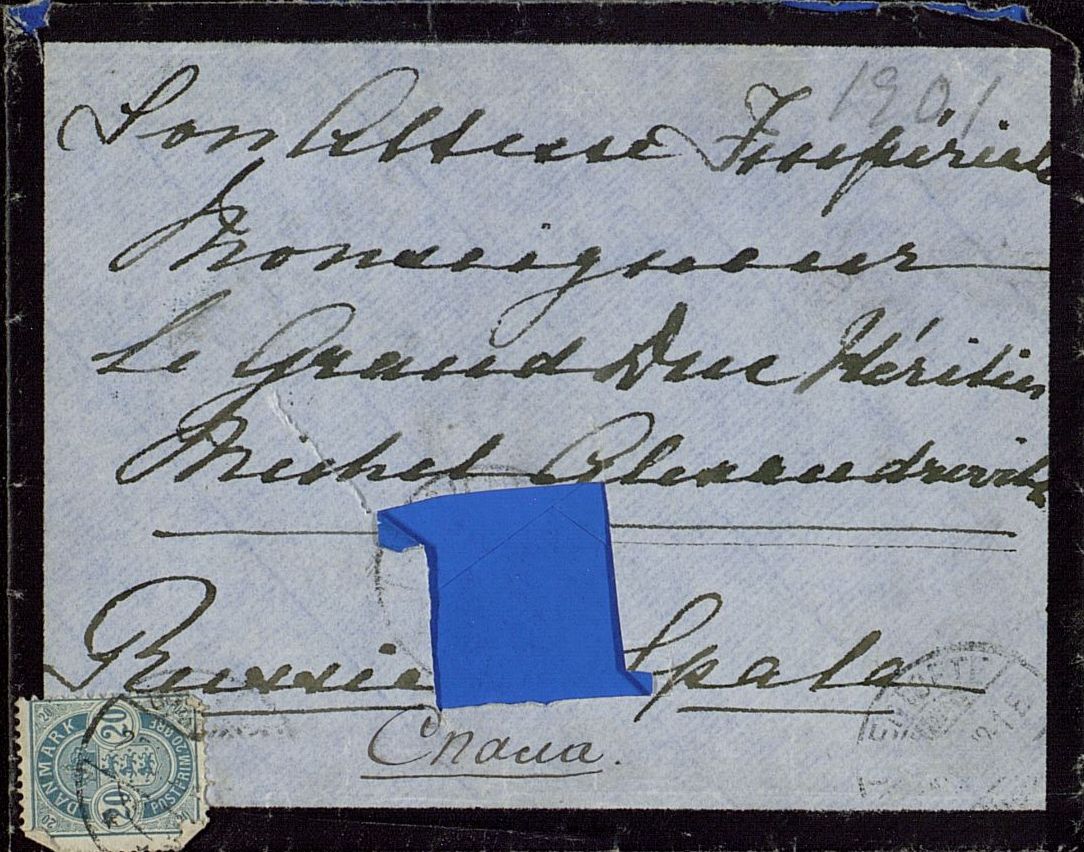 1901
Son Altesse Impériale
Monseigneur
Le Grand Duc Héritier
Michel Alexandrovitch
Russie Spala
Спала.
DANMARK 20 POSTFRIM 20 ØRE
20 20 20